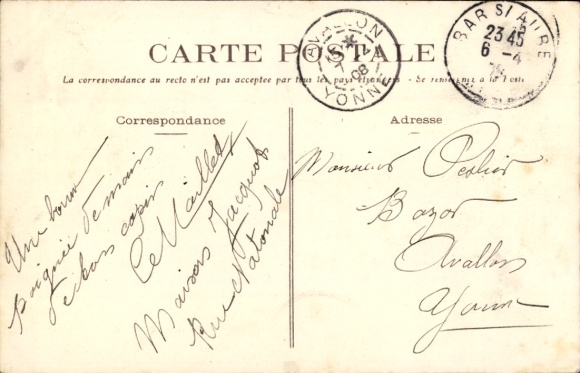 CARTE POSTALE
La correspondance au recto n'est pas acceptee par tous les pays étrangers - Se renseigner à la Poste
AVALLON
08
YONNE
BAR S/ AUBE
23 45
6 - 4
Correspondance
Une bonne
poignée de mains
de ton copin
Le Maillet
Maison Jacquot
Rue Nationale
Adresse
Monsieur
Bazar
Avallon
Yonne